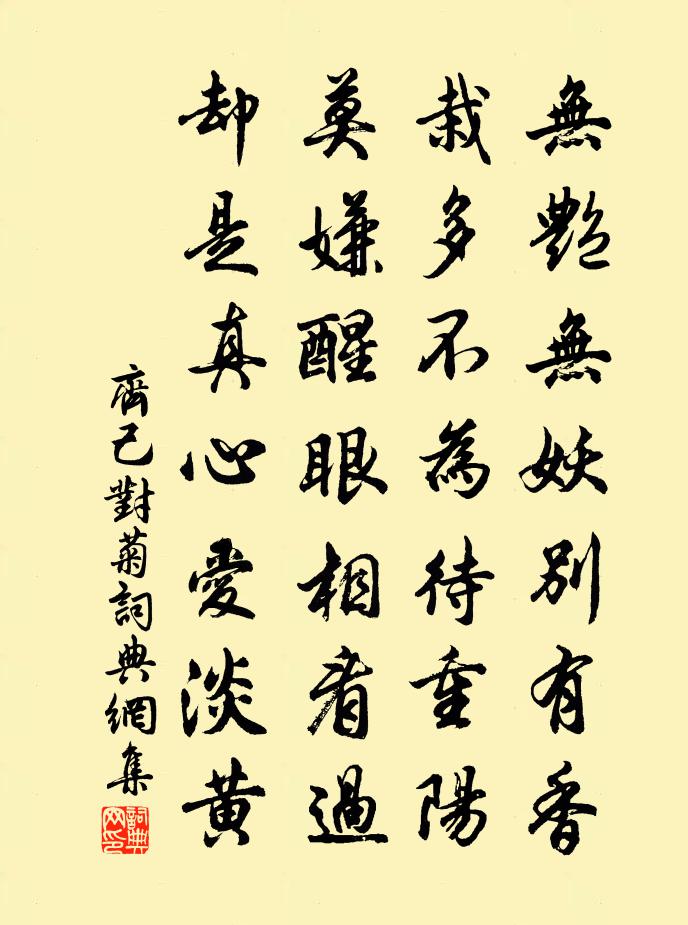 無艷無妖別有香
栽多不為待重陽
莫嫌醒眼相看過
却是真心愛淡黃
齊己對菊詞典網集
詞典网印